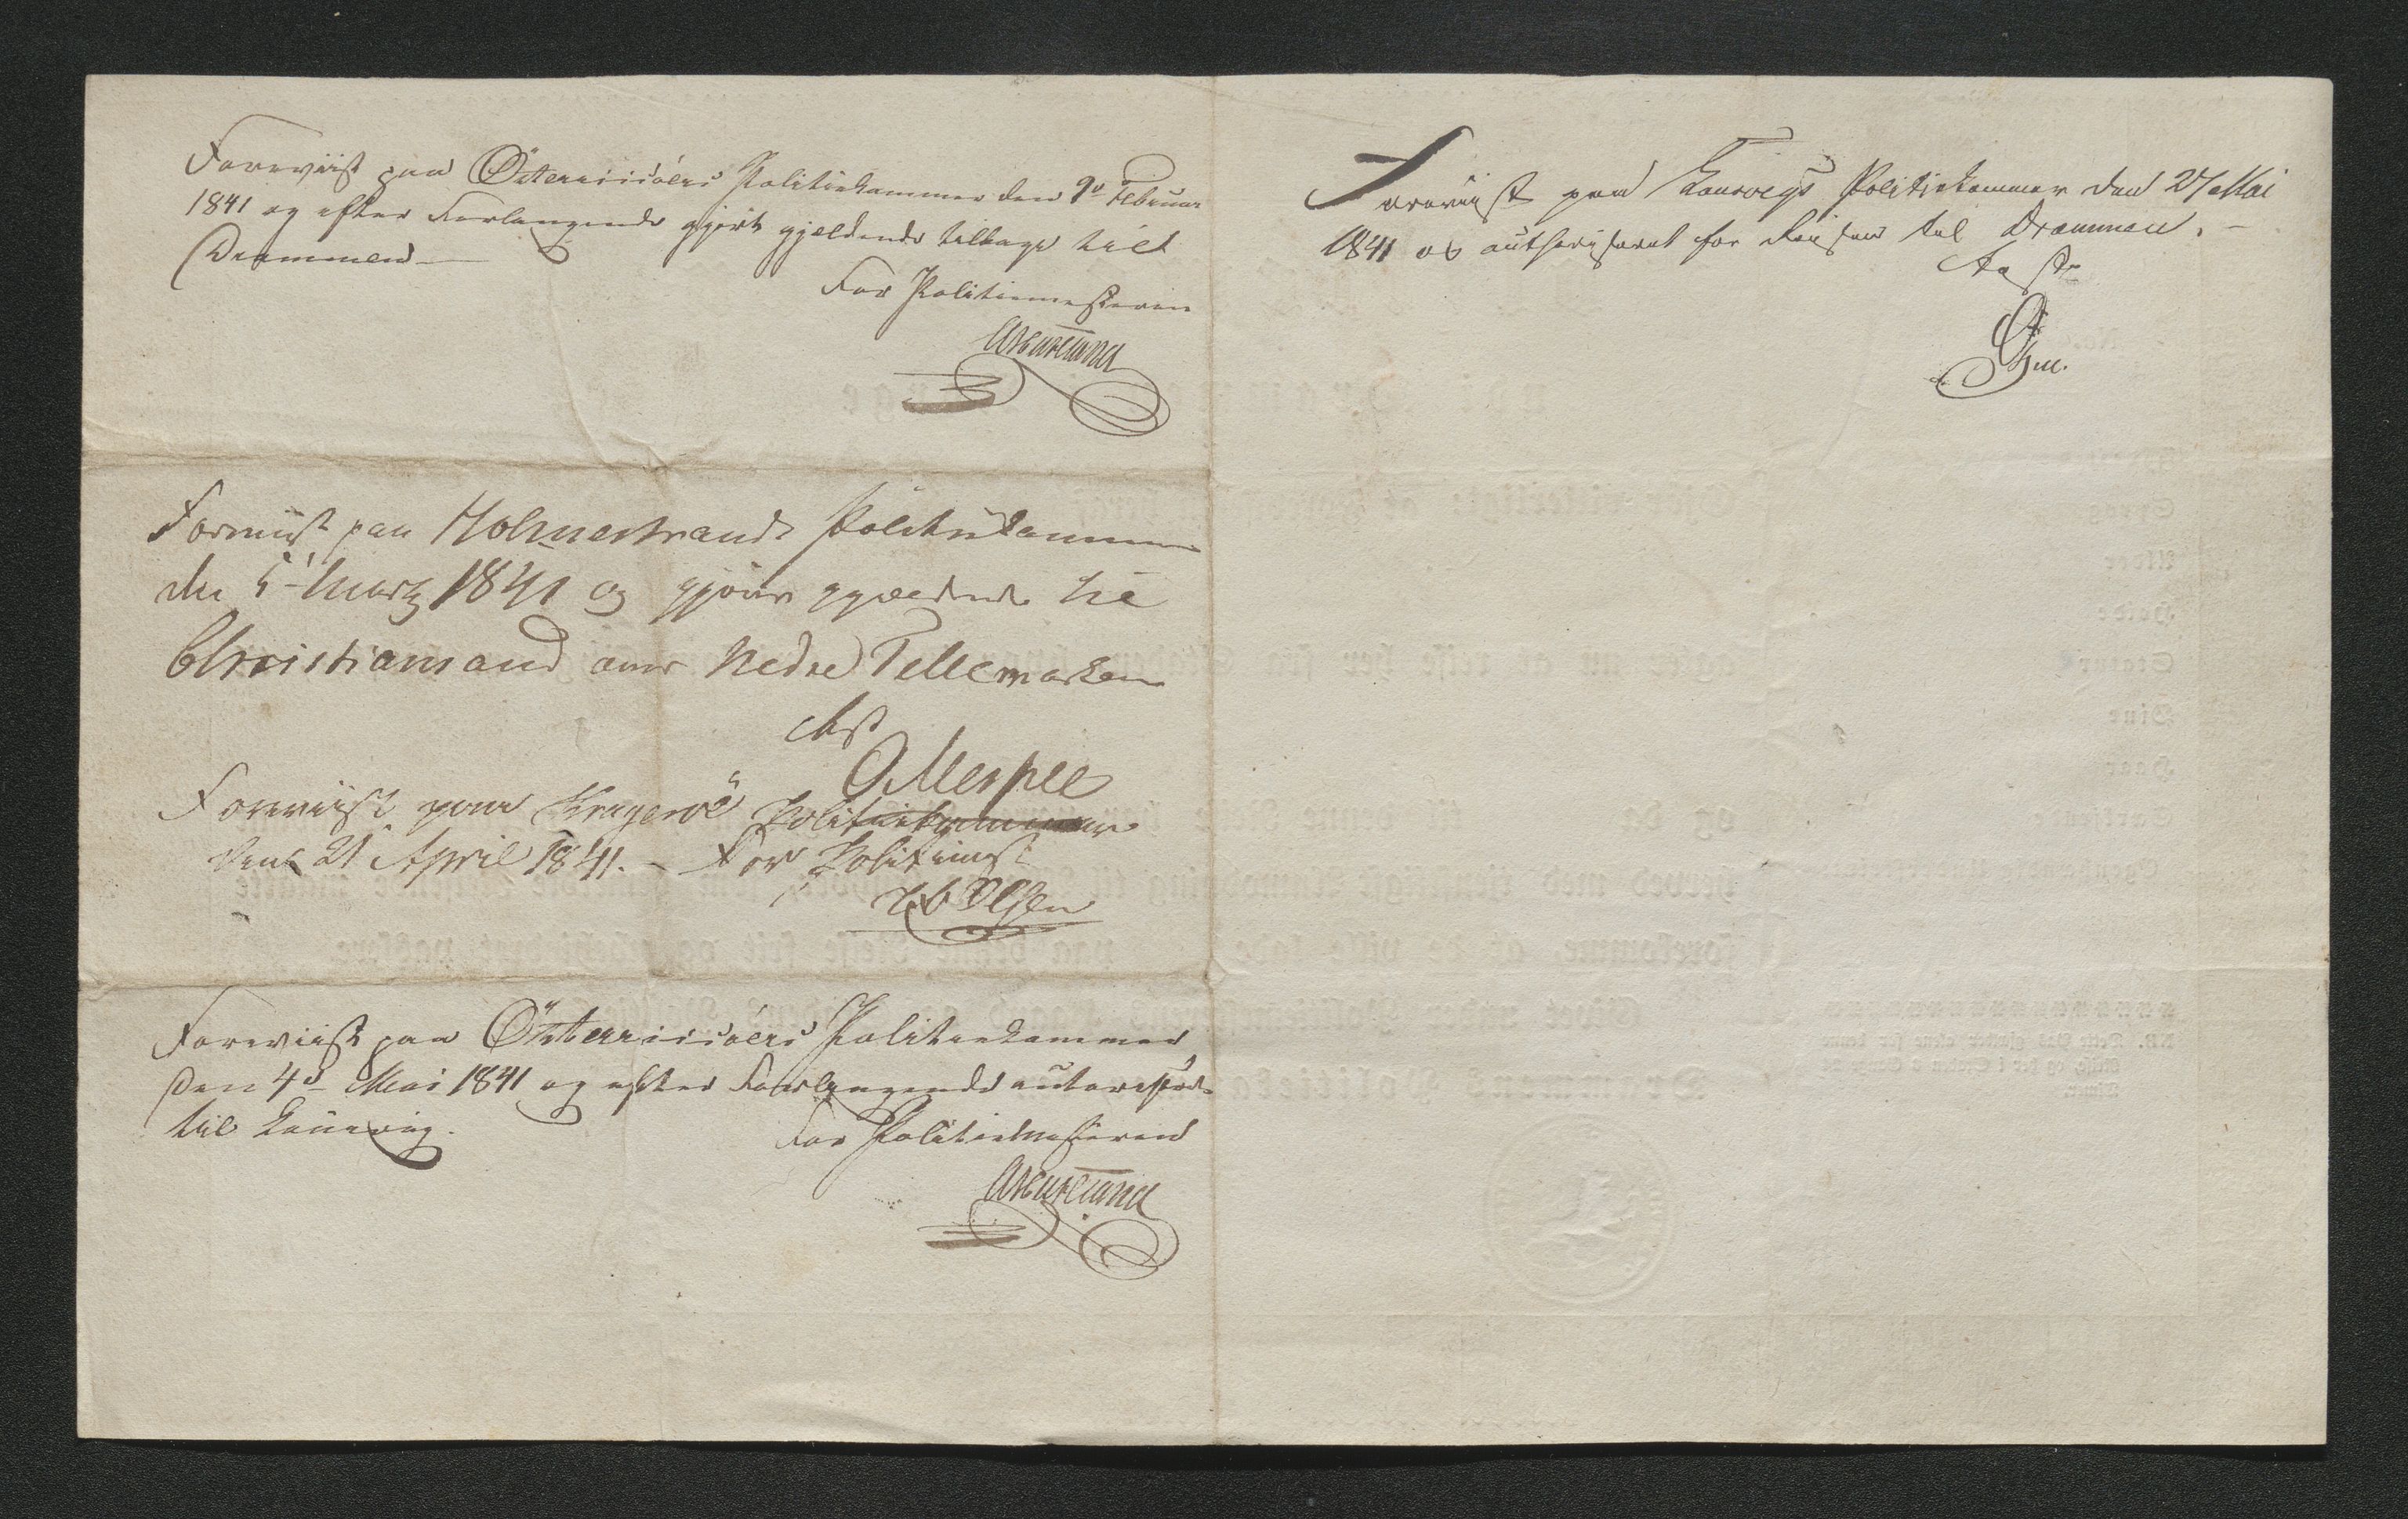 Foreviist paa Österriisöers Politiekammer den 9de Februar
1841 og efter Forlangende gjort gjældende tilbage till
Drammen
For Politiemesteren
Foreviist paa Holmestrands Politiekammer
den 5 Martz 1841 og gjöres gjældende til
Christiansand over Nedre Tellemarken
Foreviist paa Krageröe Politiekammer
den 21 April 1841. - For Politimest
Olsen
Foreviist paa Österriisöers Politiekammer
den 4de Mai 1841 og efter Forlangende autoriseret
til Laurvig.
For Politiemesteren
Foreviist paa Laurvigs Politiekammer den 27 Mai
1841 og authoriseret for Reisen til Drammen. -